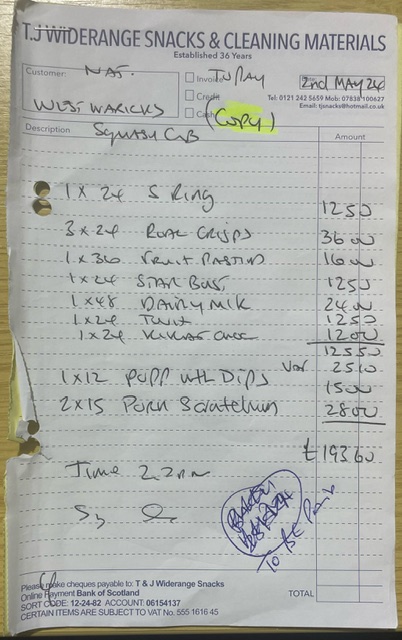 T.J WIDERANGE SNACKS & CLEANING MATERIALS
Established 36 Years
Customer: NAT.
Invoice TO PAY
2nd MAY 24
Credit
Tel: 0121 242 5659 Mob: 07838 100627
Email: tjsnacks@hotmail.co.uk
WEST WARICKS
Cash (COPY)
Description SQUASH CUB Amount
1 x 24 S Ring 1250
3 x 24 ROAL CRISPS 3600
1 x 36 FRUIT PASTILS 1600
1 x 24 STAR BUST 1250
1 x 48 DAIRY MILK 2400
1 x 24 TWIX 1250
1 x 24 1200
12550
VAT 2510
1 x 12 POPP with DIPS 1500
2 x 15 Pork Scratchin 2800
£193 60
Time 2.2
TO BE Paid
Please make cheques payable to: T & J Widerange Snacks
Online Payment Bank of Scotland
SORT CODE: 12-24-82 ACCOUNT: 06154137
CERTAIN ITEMS ARE SUBJECT TO VAT No. 555 1616 45
TOTAL